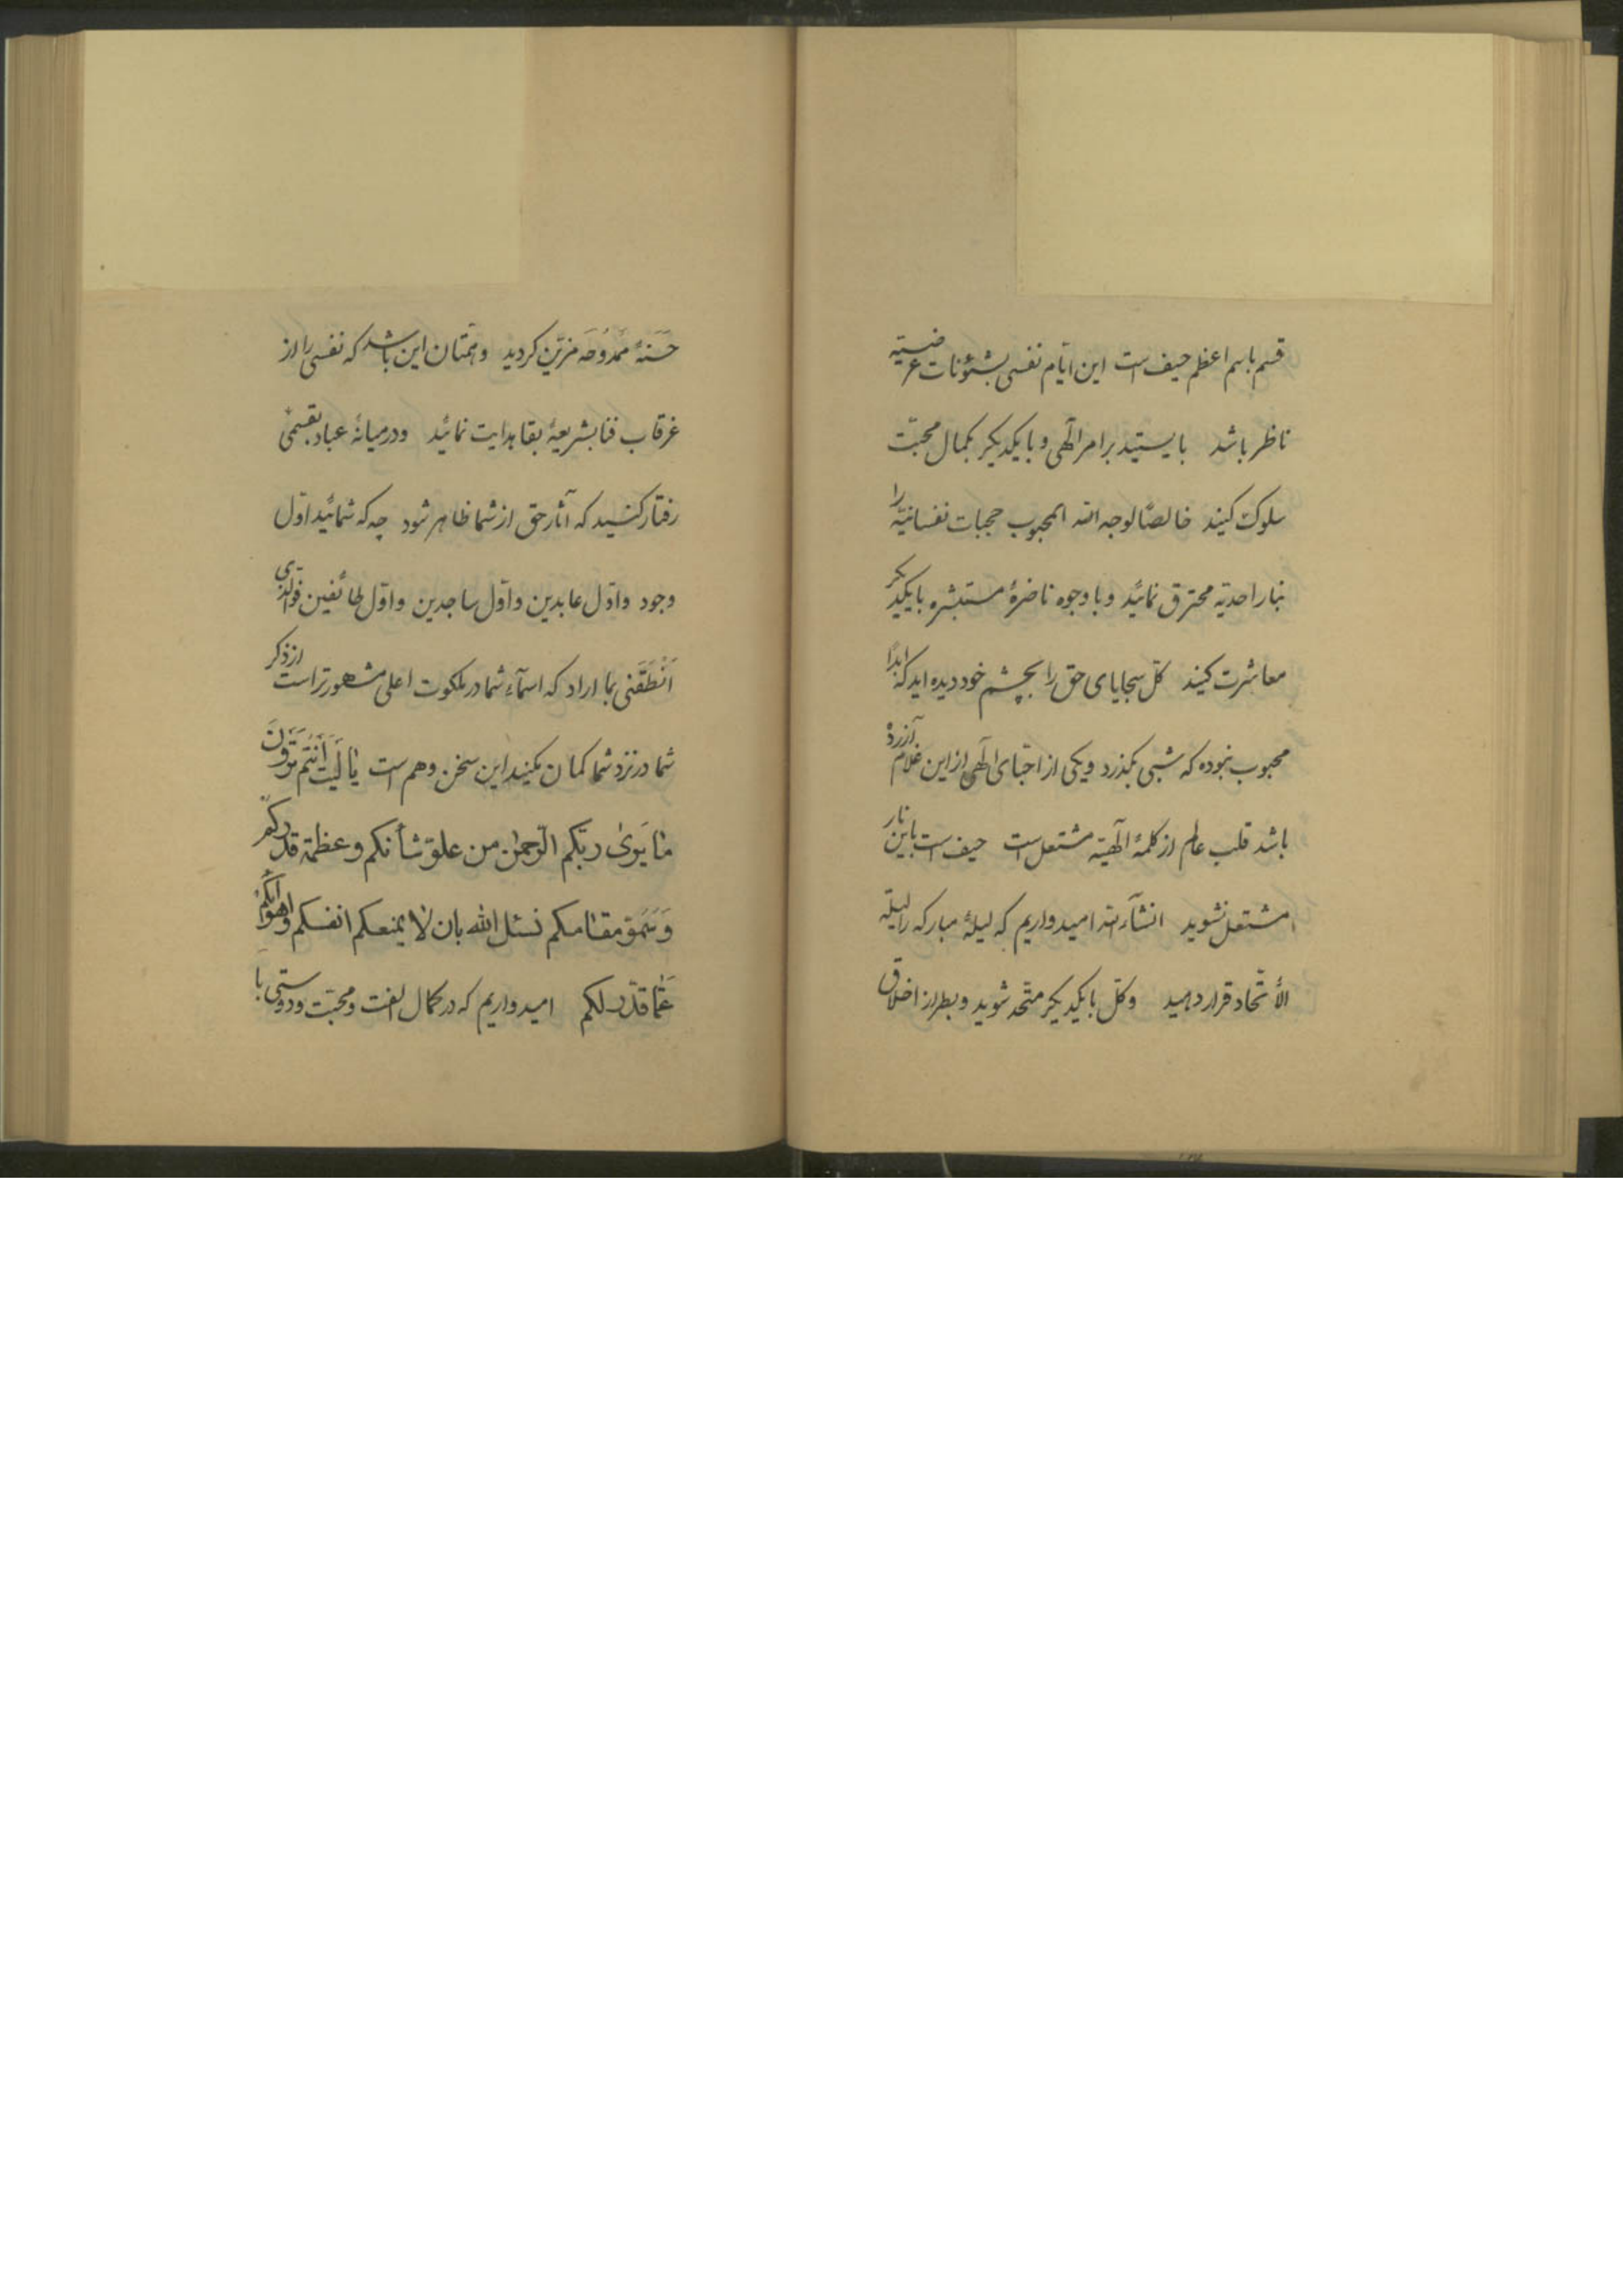 قسم باسم اعظم حیف است این ایّام نفسی بشئونات عرضیّه
ناظر باشد بایستید بر امر الهی و با یکدیگر بکمال محبّت
سلوک کنید خالصًا لوجه الله المحبوب حجبات نفسانیّه را
بنار احدیّه محترق نمائید و با وجوه ناضرهٔ مستبشره با یکدیگر
معاشرت کنید کلّ سجایای حق را بچشم خود دیده اید که ابدًا
محبوب نبوده که شبی بگذرد و یکی از احبّای الهی از این غلام آزرده
باشد قلب عالم از کلمهٔ الهیّه مشتعل است حیف است باین نار
مشتعل نشوید انشآءالله امیدواریم که لیلهٔ مبارکه را لیلة
الأتّحاد قرار دهید و کلّ با یکدیگر متّحد شوید و بطراز اخلاق
حَسَنهٔ ممدُوحَه مزیّن گردید و همّتان این باشد که نفسی را از
غرقاب فنا بشریعهٔ بقا هدایت نمائید و در میانهٔ عباد بقسمی
رفتار کنید که آثار حق از شما ظاهر شود چه که شمائید اوّل
وجود و اوّل عابدین و اوّل ساجدین و اوّل طائفین فوالّذی
اَنْطَقَنی بما اراد که اسمآء شما در ملکوت اعلی مشهورتر است از ذکر
شما در نزد شما گمان مکنید این سخن وهم است یٰا لَیتَ اَنْتُم تَرَوْنَ
مٰا یَرَیٰ ربّکم الرّحمٰن من علوّ شأنکم و عظمة قدرکم
وَ سُمَوّ مقٰامکم نسئل الله بان لٰا یمنعکم انفسکم و اهوائکم
عَمّٰا قدّر لکم امیدواریم که در کمال الفت و محبّت و دوستی با